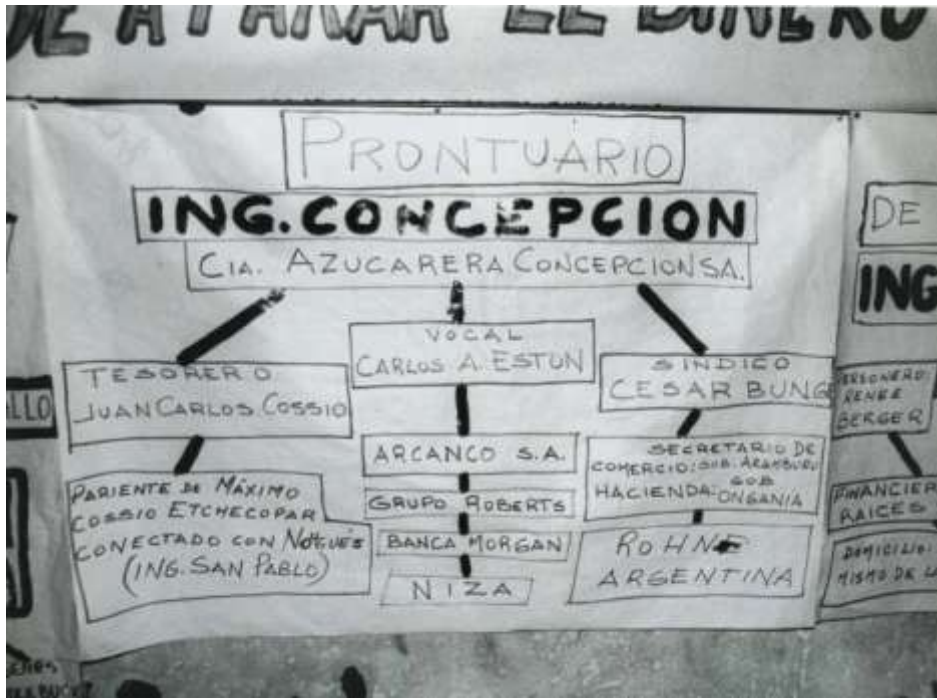 DE A PARAR EL DINERO
PRONTUARIO
ING. CONCEPCION
CIA. AZUCARERA CONCEPCION SA.
TESORERO
JUAN CARLOS COSSIO
PARIENTE DE MÁXIMO
COSSIO ETCHECOPAR
CONECTADO CON NOUGUÉS
(ING. SAN PABLO)
VOCAL
CARLOS A. ESTUN
ARCANCO S.A.
GRUPO ROBERTS
BANCA MORGAN
NIZA
SINDICO
CESAR BUNGE
SECRETARIO DE
COMERCIO: GOB. ARAMBURU
GOB
HACIENDA: ONGANIA
ROHNE
ARGENTINA
DE
ING
PERSONERO:
RENEE
BERGER
FINANCIER
RAICES
DOMICILIO:
MISMO DE LA
LLO